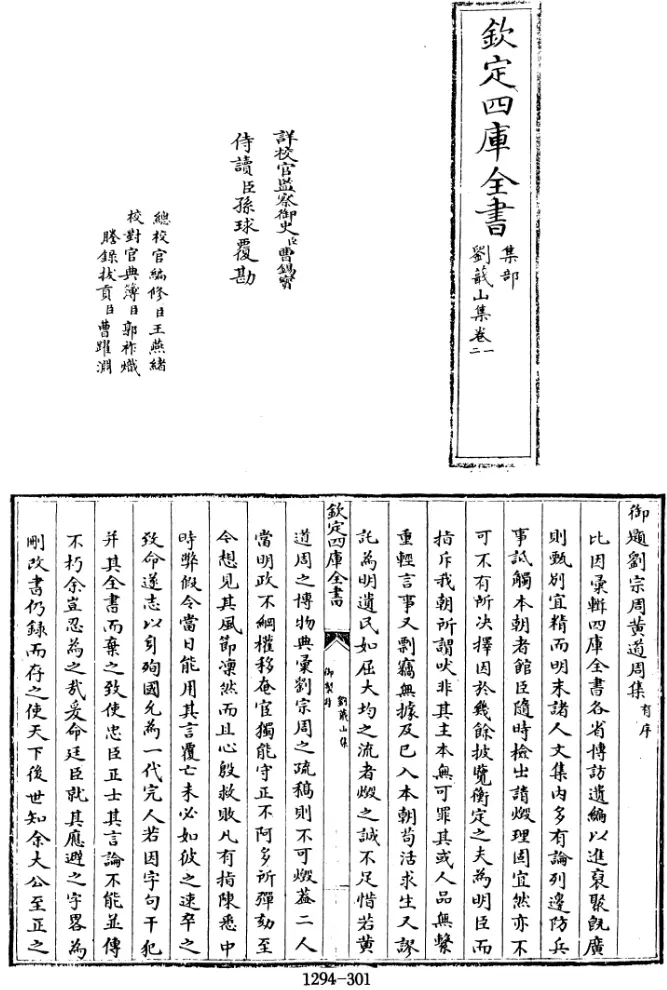 欽定四庫全書
集部
劉蕺山集卷一二
詳校官監察御史臣曹錫寶
侍讀臣孫球覆勘
總校官編修臣王燕緒
校對官典簿臣郭祚熾
謄錄拔貢臣曹躍淵
御題劉宗周黃道周集有序
比因彙輯四庫全書各省博訪遺編以進裒聚既廣
則甄別宜精而明末諸人文集內多有論列邊防兵
事詆觸本朝者館臣隨時檢出請燬理固宜然亦不
可不有所決擇因於幾餘披覽衡定之夫為明臣而
指斥我朝所謂吠非其主本無可罪其或人品無繫
重輕言事又剽竊無據及已入本朝苟活求生又謬
託為明遺民如屈大均之流者燬之誠不足惜若黃
欽定四庫全書
御製詩
劉蕺山集
道周之博物典彙劉宗周之疏稿則不可燬蓋二人
當明政不綱權移奄宦獨能守正不阿多所彈劾至
今想見其風節凜然而且心殷救敗凡有指陳悉中
時弊假令當日能用其言覆亡未必如彼之速卒之
致命遂志以身殉國允為一代完人若因字句干犯
并其全書而棄之致使忠臣正士其言論不能並傳
不朽余豈忍為之哉爰命廷臣就其應避之字畧為
刪改書仍錄而存之使天下後世知余大公至正之
1294-301